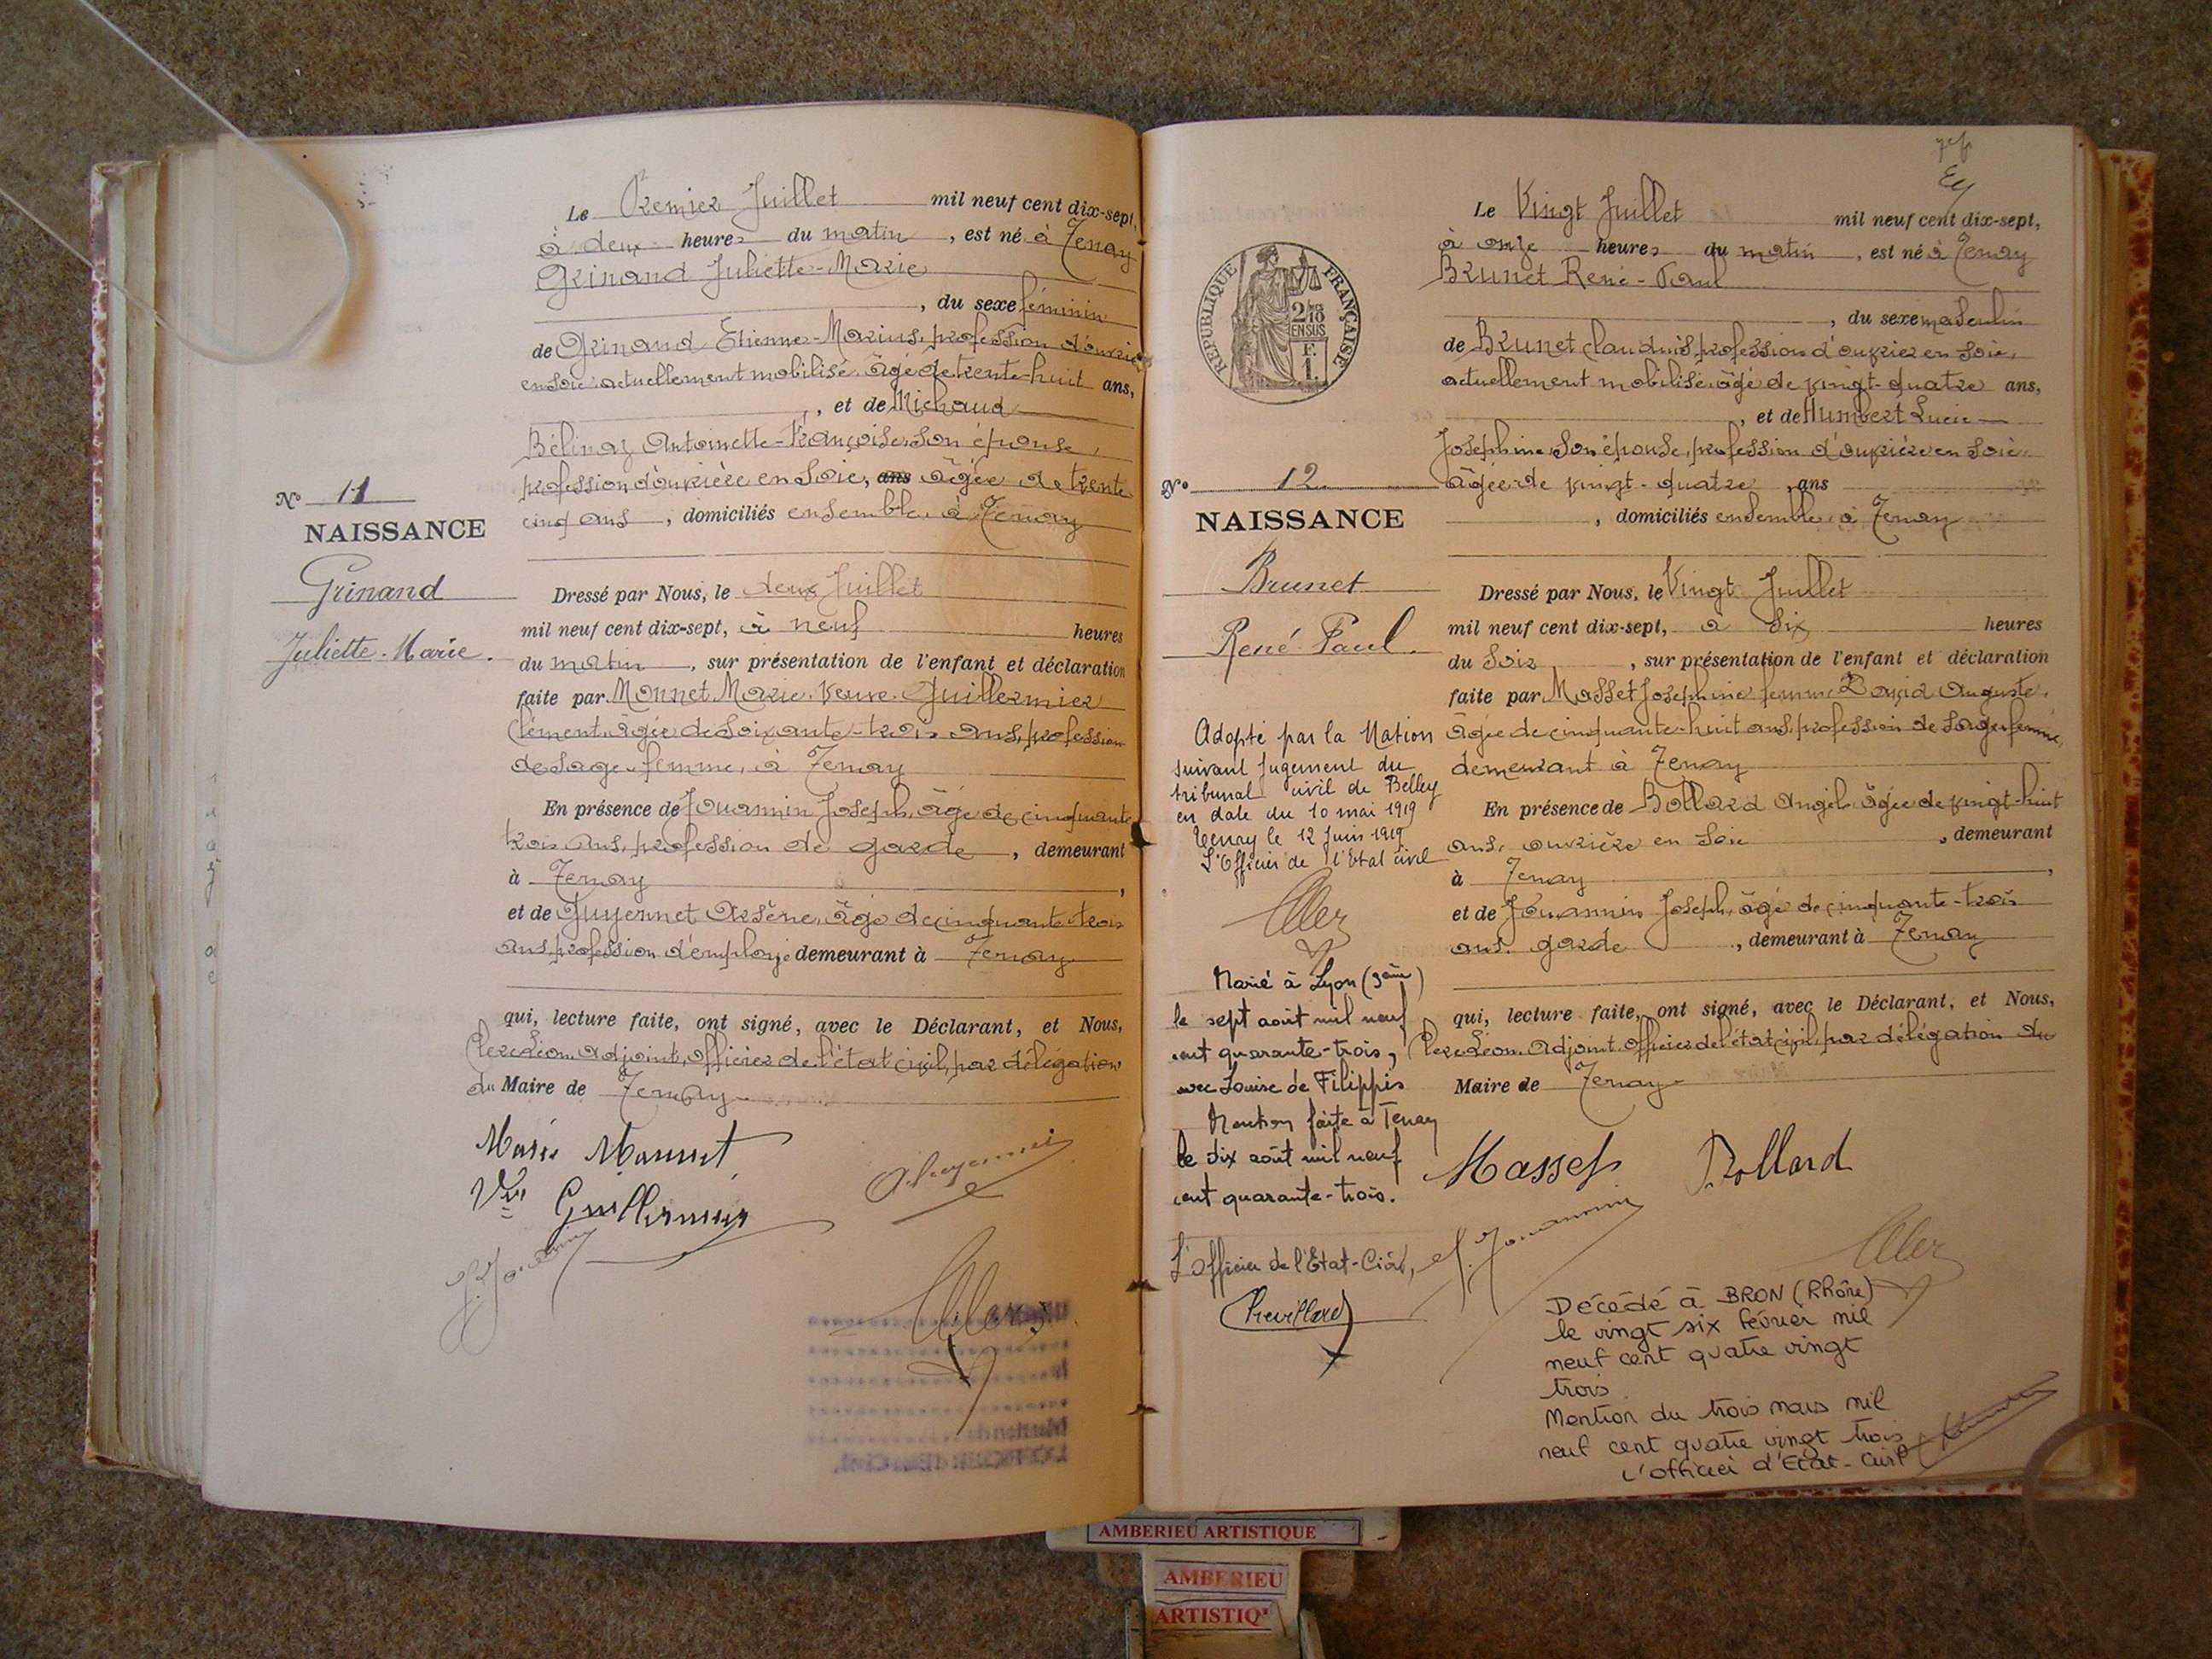 Le Premier Juillet mil neuf cent dix-sept,
à deux heures du matin, est né à Tenay
Grinand Juliette-Marie
, du sexe féminin
de Grinand Etienne-Marius, profession d'ouvrier
en soie actuellement mobilisé, âgé de trente-huit ans,
, et de Michaud
Bélinaz Antoinette-Françoise, son épouse,
profession d'ouvrière en soie, ans âgée de trente
cinq ans, domiciliés ensemble, à Tenay
N° 11
NAISSANCE
Grinand
Juliette-Marie.
Dressé par Nous, le deux Juillet
mil neuf cent dix-sept, à neuf heures
du matin, sur présentation de l'enfant et déclaration
faite par Monnet Marie, veuve Guillermier
Clément, âgée de soixante-trois ans, profession
de sage-femme, à Tenay
En présence de Jouannin Joseph, âgé de cinquante
trois ans, profession de garde, demeurant
à Tenay,
et de Guyennet Arsène, âgé de cinquante-trois
ans, profession d'employé demeurant à Tenay
qui, lecture faite, ont signé, avec le Déclarant, et Nous,
Clerc Léon, Adjoint, officier de l'état civil, par délégation
du Maire de Tenay
Marie Monnet
Vve Guillermier
A. Guyennet
J. Jouannin
Clerc
Le Vingt Juillet mil neuf cent dix-sept,
à onze heures du matin, est né à Tenay
Brunet René-Paul
, du sexe masculin
de Brunet Claudius, profession d'ouvrier en soie,
actuellement mobilisé, âgé de vingt-quatre ans,
, et de Humbert Lucie
Joséphine, son épouse, profession d'ouvrière en soie,
âgée de vingt-quatre, ans
, domiciliés ensemble, à Tenay
REPUBLIQUE FRANÇAISE
2/10 EN SUS
F. 1.
N° 12
NAISSANCE
Brunet
René-Paul.
Dressé par Nous, le Vingt Juillet
mil neuf cent dix-sept, à six heures
du soir, sur présentation de l'enfant et déclaration
faite par Masset Joséphine femme David Auguste,
âgée de cinquante-huit ans, profession de sage-femme,
demeurant à Tenay
En présence de Bollard Angèle, âgée de vingt-huit
ans, ouvrière en soie, demeurant
à Tenay,
et de Jouannin Joseph, âgé de cinquante-trois
ans, garde, demeurant à Tenay
qui, lecture faite, ont signé, avec le Déclarant, et Nous,
Clerc Léon, Adjoint, officier de l'état civil, par délégation du
Maire de Tenay
Masset
Bollard
J. Jouannin
Clerc
Adopté par la Nation
suivant jugement du
tribunal civil de Belley
en date du 10 mai 1919
Tenay le 12 Juin 1919
L'Officier de l'Etat civil
Clerc
Marié à Lyon (3ème)
le sept août mil neuf
cent quarante-trois,
avec Louise de Filippis
Mention faite à Tenay
le dix août mil neuf
cent quarante-trois.
L'officier de l'Etat-Civil,
Chevillard
Décédé à BRON (Rhône)
le vingt six février mil
neuf cent quatre vingt
trois
Mention du trois mars mil
neuf cent quatre vingt trois
L'officier d'Etat-Civil
AMBERIEU ARTISTIQUE
AMBERIEU
ARTISTIQ'